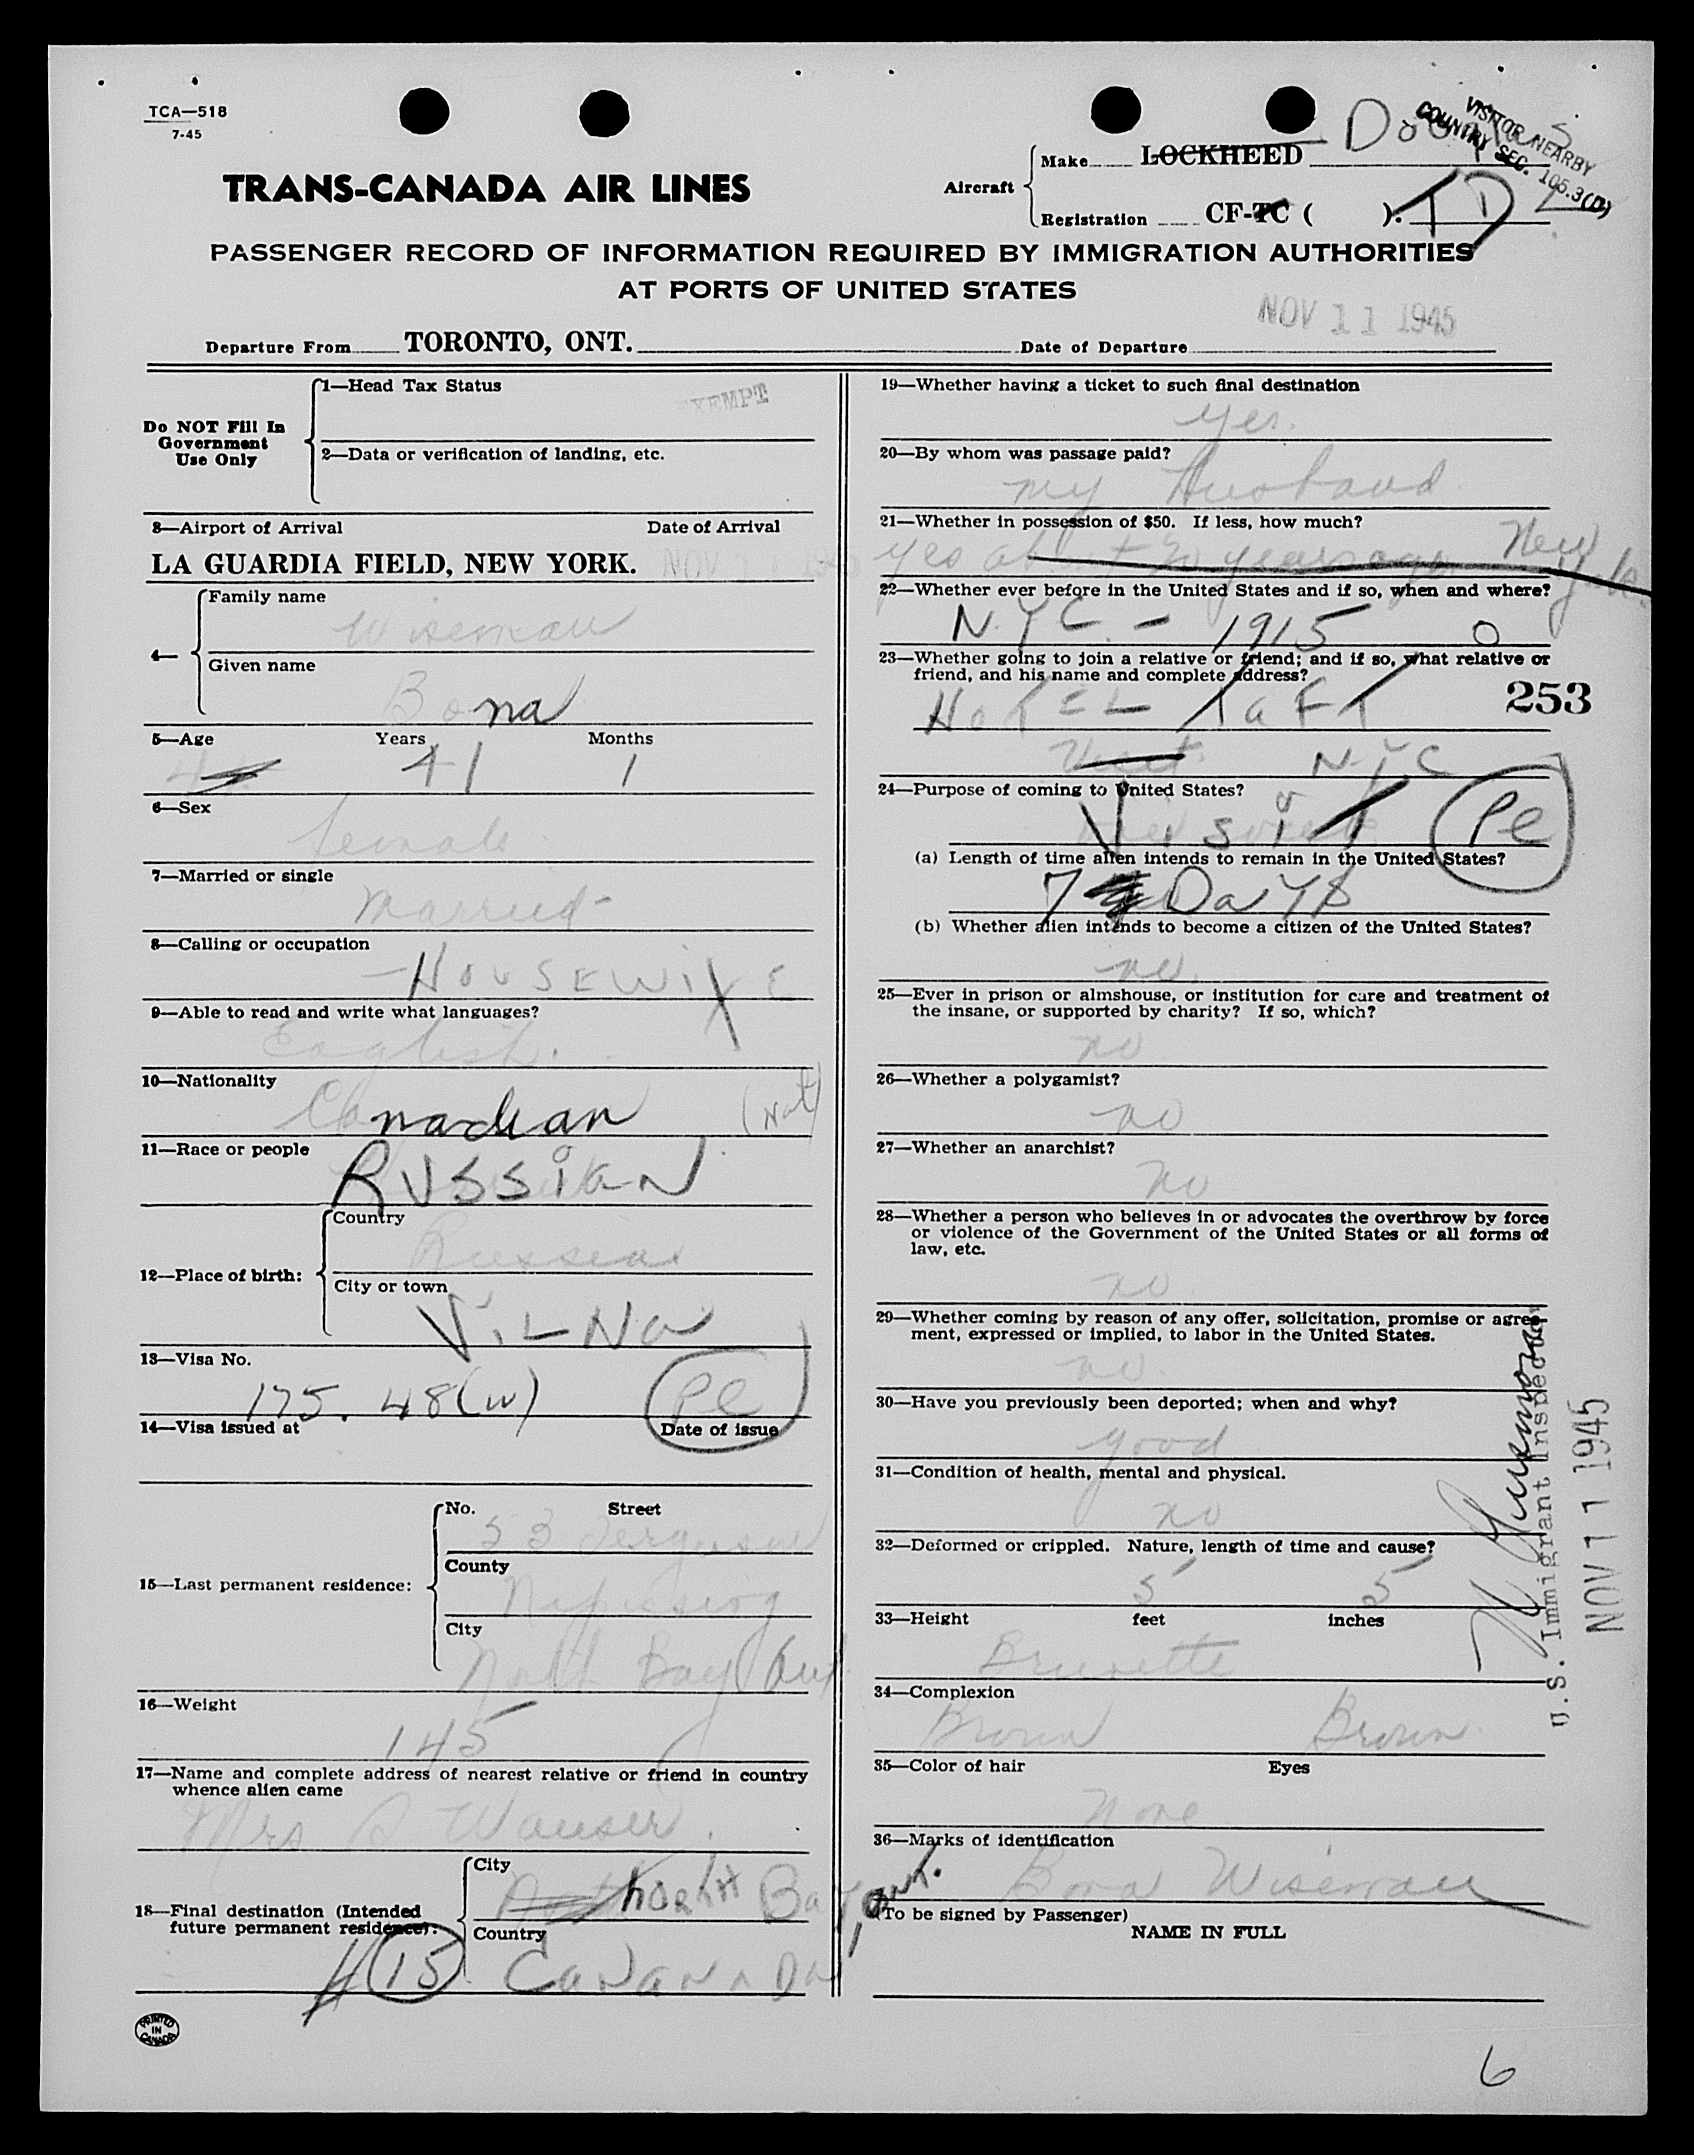 TCA—518
7-45
VISITOR NEARBY
COUNTRY SEC. 105.3(D)
Aircraft
Make LOCKHEED Douglas
Registration CF-TC ( ). TD
TRANS-CANADA AIR LINES
PASSENGER RECORD OF INFORMATION REQUIRED BY IMMIGRATION AUTHORITIES
AT PORTS OF UNITED STATES
NOV 11 1945
Departure From TORONTO, ONT. Date of Departure
Do NOT Fill In
Government
Use Only
1—Head Tax Status
EXEMPT
2—Data or verification of landing, etc.
3—Airport of Arrival Date of Arrival
LA GUARDIA FIELD, NEW YORK. NOV 11 1945
4—
Family name
Wiseman
Given name
Bona
5—Age Years Months
41 1
6—Sex
female
7—Married or single
Married
8—Calling or occupation
HOUSEWIFE
9—Able to read and write what languages?
English.
10—Nationality
Canadian (Nat)
11—Race or people
RUSSIAN
12—Place of birth:
Country
Russia
City or town
VILNa
13—Visa No.
175.48(w) PC
14—Visa issued at Date of issue
15—Last permanent residence:
No. Street
53 Ferguson
County
Nipissing
City
North Bay Ont
16—Weight
145
17—Name and complete address of nearest relative or friend in country
whence alien came
Mrs S
18—Final destination (Intended
future permanent residence):
City
North Bay, Ont.
Country
CANADA
15
PRINTED
IN
CANADA
19—Whether having a ticket to such final destination
yes.
20—By whom was passage paid?
my Husband
21—Whether in possession of $50. If less, how much?
yes about 30 years ago New York
22—Whether ever before in the United States and if so, when and where?
N.Y.C. - 1915
23—Whether going to join a relative or friend; and if so, what relative or
friend, and his name and complete address?
HOTEL TaFT
253
Visit N.Y.C
24—Purpose of coming to United States?
Visit PC
(a) Length of time alien intends to remain in the United States?
7 DaYS
(b) Whether alien intends to become a citizen of the United States?
no.
25—Ever in prison or almshouse, or institution for care and treatment of
the insane, or supported by charity? If so, which?
no
26—Whether a polygamist?
no
27—Whether an anarchist?
no
28—Whether a person who believes in or advocates the overthrow by force
or violence of the Government of the United States or all forms of
law, etc.
no
29—Whether coming by reason of any offer, solicitation, promise or agree-
ment, expressed or implied, to labor in the United States.
no.
30—Have you previously been deported; when and why?
good
31—Condition of health, mental and physical.
no
32—Deformed or crippled. Nature, length of time and cause?
5 5
33—Height feet inches
Brunette
34—Complexion
Brown Brown
35—Color of hair Eyes
None
36—Marks of identification
Bona Wiseman
(To be signed by Passenger)
NAME IN FULL
U.S. Immigrant Inspector
NOV 11 1945
6